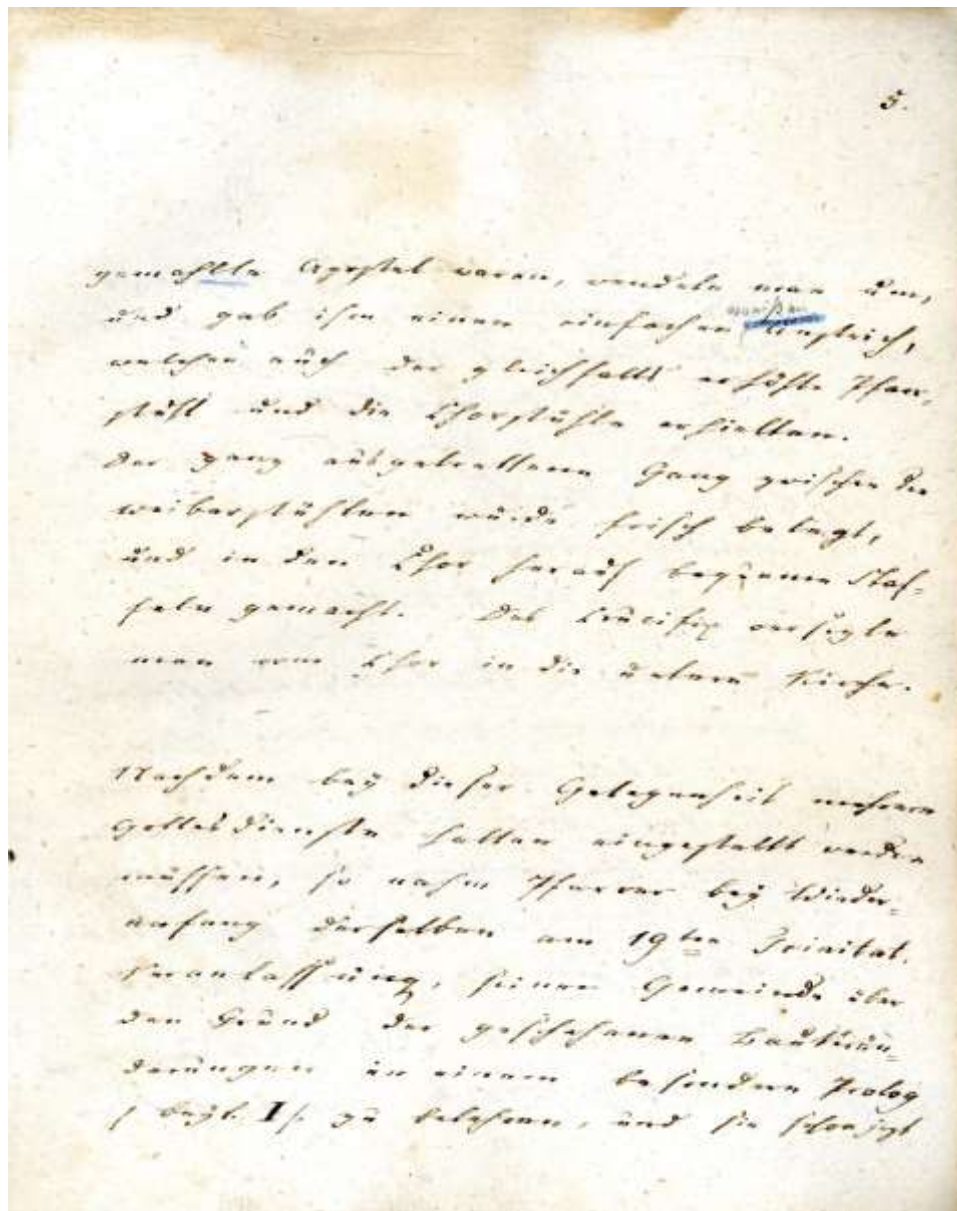 5.
gemahlte Apostel waren, wendete man um,
weißen
und gab ihm einen einfachen Anstrich,
welchen auch der gleichfalls erhöhte Pfarr-
stuhl und die Chorstühle erhielten.
Der ganz ausgetrettene Gang zwischen den
Weiberstühlen wurde frisch belegt,
und in den Chor herauf bequeme Staf-
feln gemacht. Das Crucifix versezte
man vom Chor in die untere Kirche.
Nachdem bey dieser Gelegenheit mehrere
Gottesdienste hatten eingestellt werden
müssen, so nahm Pfarrer bey Wieder-
anfang derselben am 19ten Trinitat.
Veranlassung, seiner Gemeinde über
den Grund der geschehenen Bauverän-
derungen in einem besondern Prolog
/ Beyl. I /. zu belehren, und sie schon jezt